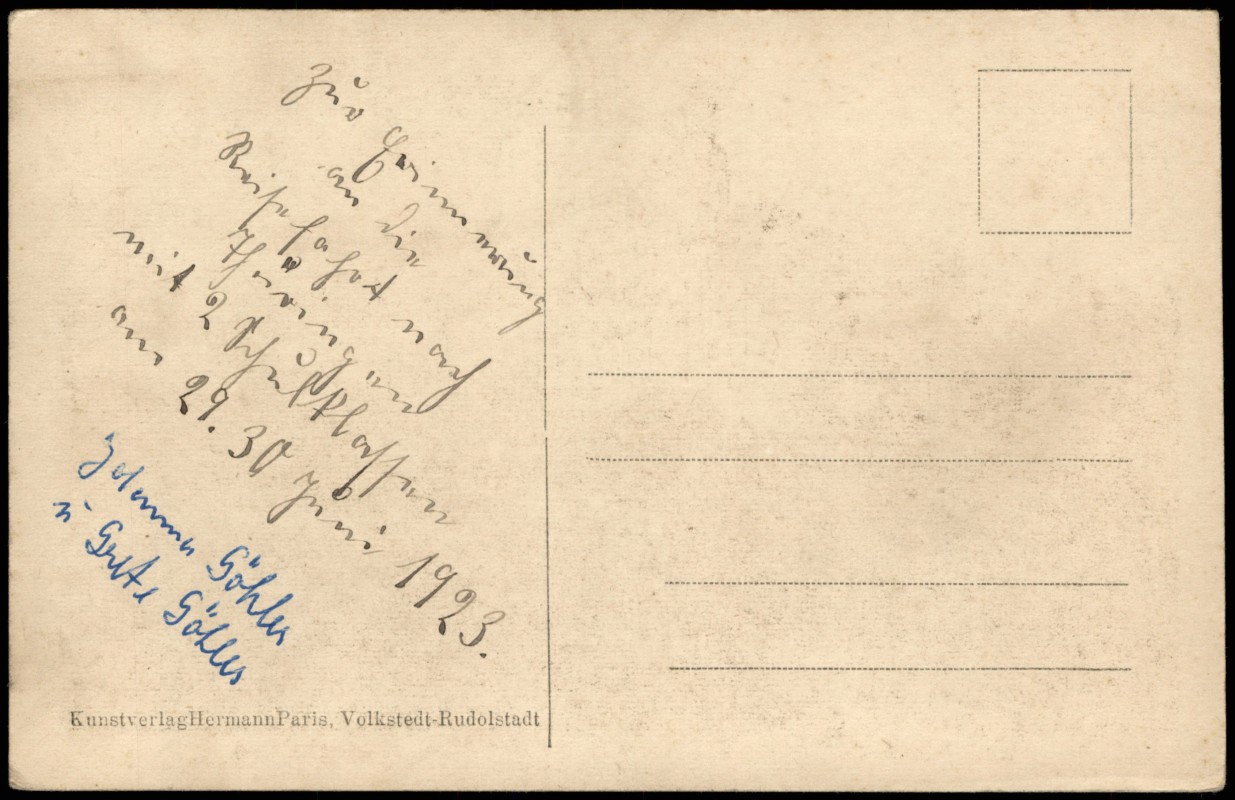 Zur
Erinnerung
an die
Reisefahrt nach
Thüringen
mit 2 Schulklassen
am 29. 30 Juni 1923.
Johanna Göhler
u Grete Göhler
KunstverlagHermannParis, Volkstedt-Rudolstadt